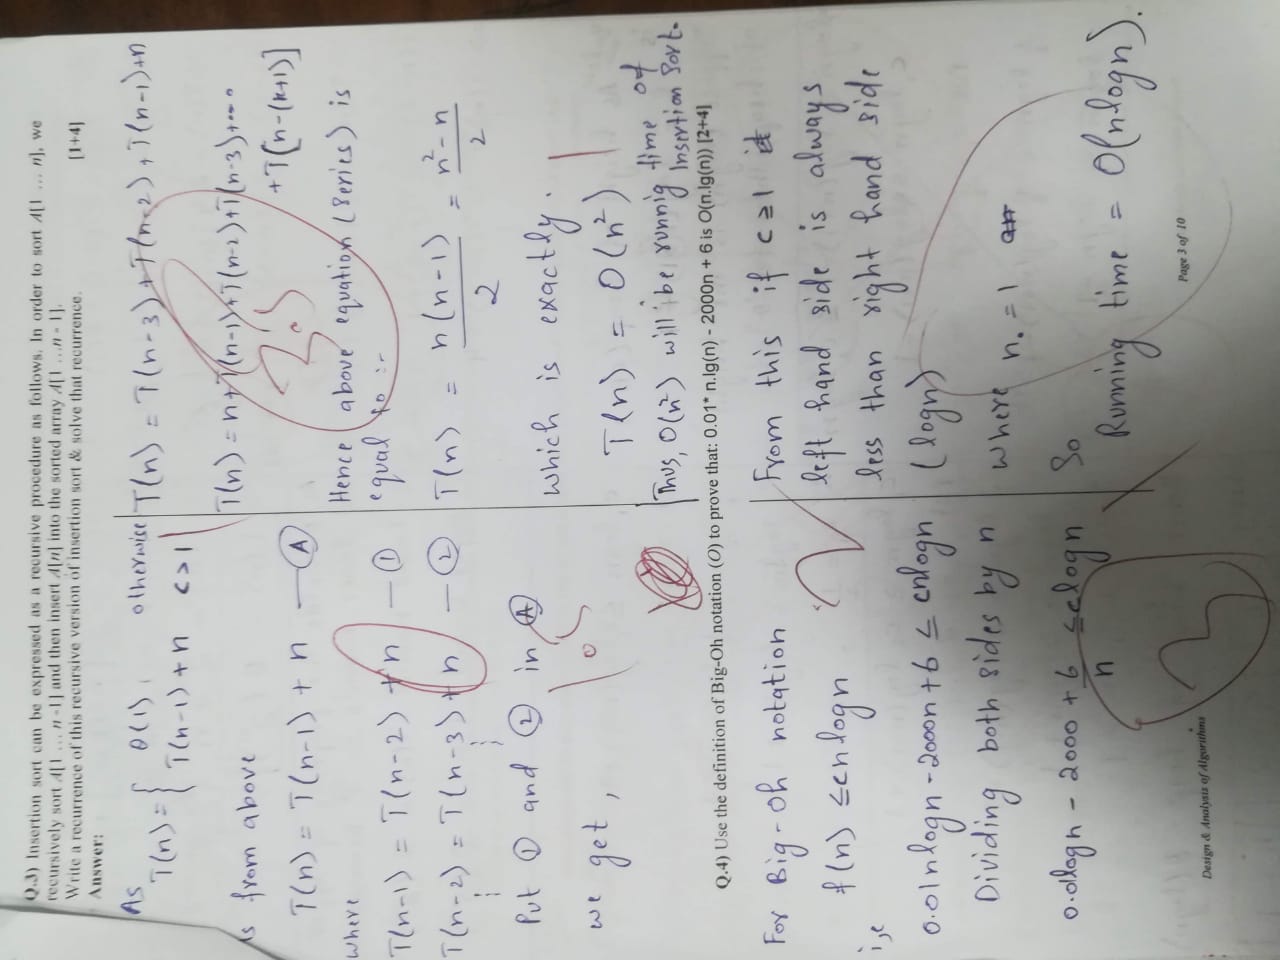 Q.3) Insertion sort can be expressed as a recursive procedure as follows. In order to sort A[1 ... n], we
recursively sort A[1 ... n -1] and then insert A[n] into the sorted array A[1 ...n - 1].
Write a recurrence of this recursive version of insertion sort & solve that recurrence.
[1+4]
Answer:
As
T(n) = { θ(1), otherwise
T(n-1) + n c>1
As from above
T(n) = T(n-1) + n — A
where
T(n-1) = T(n-2) + n — 1
T(n-2) = T(n-3) + n — 2
Put 1 and 2 in A
we get,
0.5
1
T(n) = T(n-3) + T(n-2) + T(n-1) + n
T(n) = n + T(n-1) + T(n-2) + T(n-3) + ....
+ T[n-(k+1)]
3.5
Hence above equation (Series) is
equal to :-
T(n) = n(n-1)/2 = n²-n/2
which is exactly.
T(n) = O(n²)
Thus, O(n²) will be runnig time of
Insertion Sort.
Q.4) Use the definition of Big-Oh notation (O) to prove that: 0.01* n.lg(n) - 2000n + 6 is O(n.lg(n)) [2+4]
For Big-Oh notation
f(n) ≤cnlogn
i,e
0.01nlogn - 2000n + 6 ≤ cnlogn
Dividing both sides by n
0.01logn - 2000 + 6/n ≤ clogn
2
3
From this if c≥1
left hand side is always
less than right hand side
(logn)
where n. = 1
So
Running time = O(nlogn).
Page 3 of 10
Design & Analysis of Algorithms